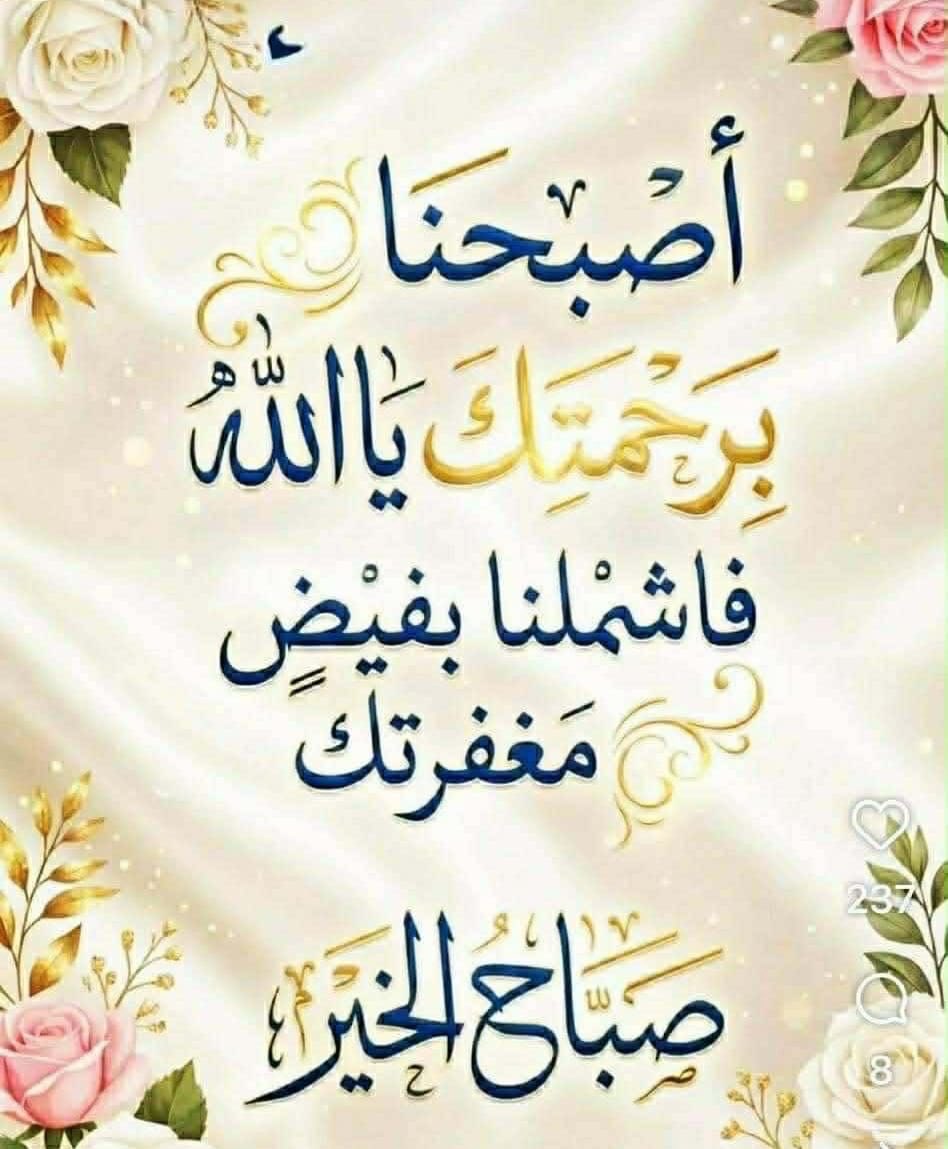 أصْبحنَا
بِرَحْمَتِكَ يَاالله
فاشمْلنا بفيْضٍ
مَغفرتك
صَبَّاحُ الخَيْر
237
8